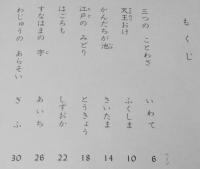 もくじ
三つの ことわざ いわて 6
天王おけ ふくしま 10
かんだちが池 さいたま 14
江戸の みどり とうきょう 18
はごろも しずおか 22
すなはまの 字 あいち 26
わじゅうの あらそい ぎふ 30